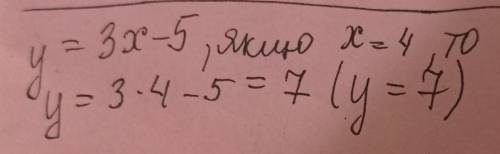 y = 3x - 5, якщо x = 4, то
y = 3 · 4 - 5 = 7 (y = 7)